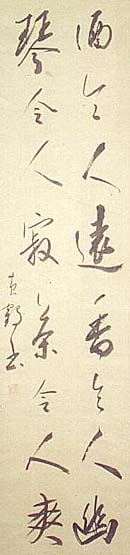 酒令人遠香令人幽
琴令人寂茶令人爽
鶴書